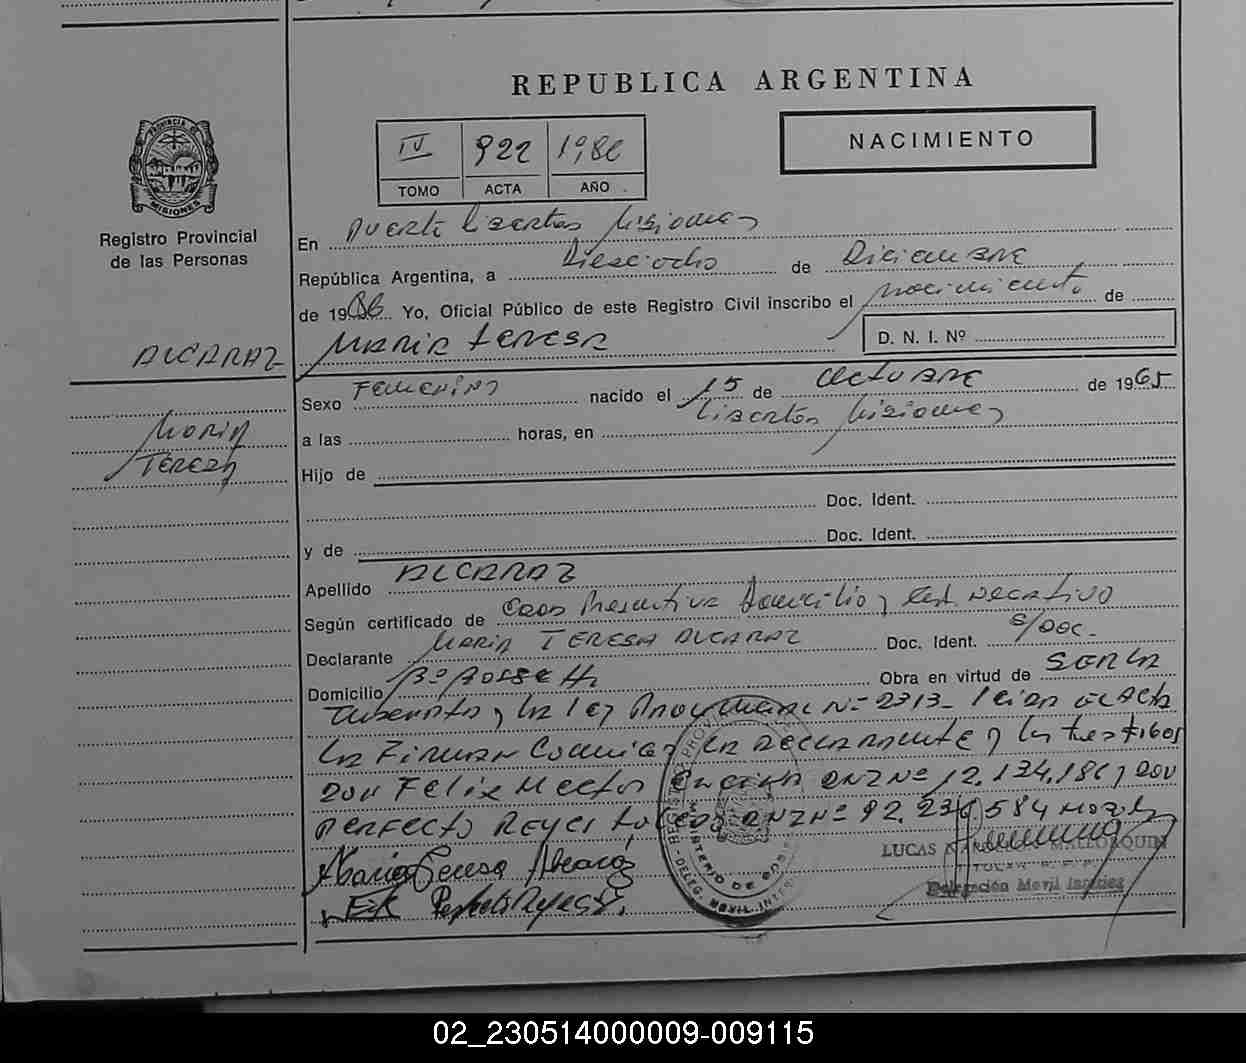 REPUBLICA ARGENTINA
IV 922 1986
TOMO ACTA AÑO
NACIMIENTO
PROVINCIA DE MISIONES
Registro Provincial
de las Personas
En Puerto Libertad Misiones
República Argentina, a Dieciocho de Diciembre
de 1986 Yo, Oficial Público de este Registro Civil inscribo el nacimiento de
ALCARAZ MARIA TERESA D. N. I. Nº
Sexo Femenino nacido el 15 de Octubre de 1965
Maria
Tereza
a las horas, en Libertad Misiones
Hijo de
Doc. Ident.
y de Doc. Ident.
Apellido ALCARAZ
Según certificado de Domicilio y
Declarante MARIA TERESA ALCARAZ Doc. Ident. S/DOC.
Domicilio Bº Rossetti Obra en virtud de
y la ley Nº 2313 - el Acta
la Firman la declarante y los testigos
Don Felix Hector DNI Nº 12.134.186 y Don
PERFECTO REYES DNI Nº 92.236.584
LUCAS
Maria Teresa Alcaraz
Delegación Movil
02_230514000009-009115